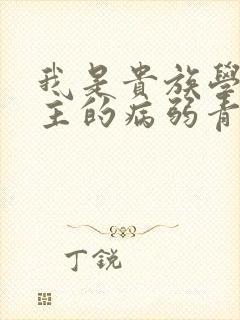 我是貴族學
主的病弱青
丁銳